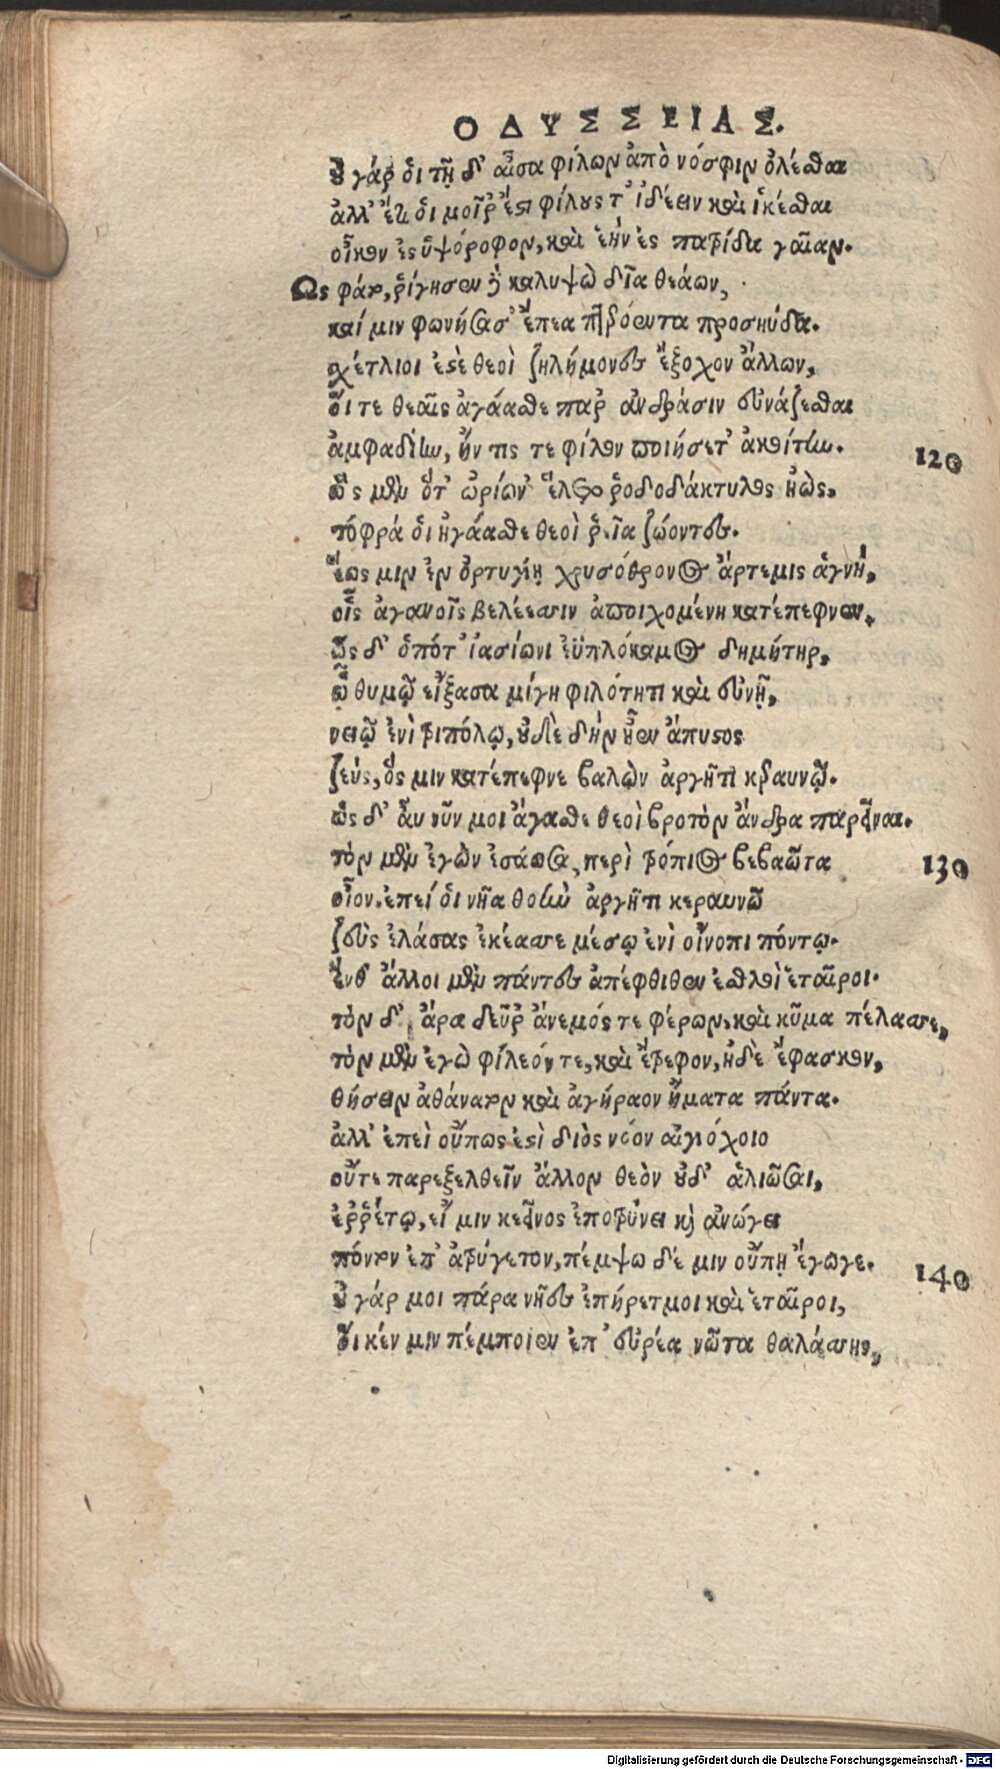 ΟΔΥΣΣΕΙΑΣ.
οὐ γάρ οἱ τῇ δ' αἶσα φίλων ἀπὸ νόσφιν ὀλέσθαι
ἀλλ' ἔτι οἱ μοῖρ' ἐστὶ φίλους τ' ἰδέειν καὶ ἱκέσθαι
οἶκον ἐς ὑψόροφον, καὶ ἑὴν ἐς πατρίδα γαῖαν.
Ως φάτο, ῥίγησεν δὲ καλυψὼ δῖα θεάων,
καί μιν φωνήσασ' ἔπεα πτερόεντα προσηύδα.
σχέτλιοι ἐστὲ θεοὶ ζηλήμονες ἔξοχον ἄλλων,
οἵ τε θεαῖς ἀγάασθε παρ' ἀνδράσιν εὐνάζεσθαι
ἀμφαδίην, ἤν τις τε φίλον ποιήσετ' ἀκοίτην.
120
ὣς μὲν ὅτ' ὠρίων' ἕλετο ῥοδοδάκτυλος ἠὼς,
τόφρά οἱ ἠγάασθε θεοὶ ῥεῖα ζώοντες.
ἕως μιν ἐν ὀρτυγίῃ χρυσόθρονος ἄρτεμις ἁγνὴ,
οἷς ἀγανοῖς βελέεσσιν ἀποιχομένη κατέπεφνεν.
ὣς δ' ὁπότ' ἰασίωνι ἐϋπλόκαμος δημήτηρ,
ᾧ θυμῷ εἴξασα μίγη φιλότητι καὶ εὐνῇ,
νειῷ ἐνὶ τριπόλῳ, οὐδὲ δὴν ἦεν ἄπυστος
ζεύς, ὅς μιν κατέπεφνε βαλὼν ἀργῆτι κεραυνῷ.
ὣς δ' αὖ νῦν μοι ἄγασθε θεοὶ βροτὸν ἄνδρα παρεῖναι.
τὸν μὲν ἐγὼν ἐσάωσα, περὶ τρόπιος βεβαῶτα
130
οἶον. ἐπεί οἱ νῆα θοὴν ἀργῆτι κεραυνῷ
ζεὺς ἐλάσας ἐκέασσε μέσῳ ἐνὶ οἴνοπι πόντῳ.
ἔνθ' ἄλλοι μὲν πάντες ἀπέφθιθεν ἐσθλοὶ ἑταῖροι.
τὸν δ' ἄρα δεῦρ' ἄνεμός τε φέρων, καὶ κῦμα πέλασσε,
τὸν μὲν ἐγὼ φίλεόν τε, καὶ ἔτρεφον, ἠδὲ ἔφασκον,
θήσειν ἀθάνατον καὶ ἀγήραον ἤματα πάντα.
ἀλλ' ἐπεὶ οὔπως ἐστὶ διὸς νόον αἰγιόχοιο
οὔτε παρεξελθεῖν ἄλλον θεὸν οὐδ' ἁλιῶσαι,
ἐρρέτω, εἴ μιν κεῖνος ἐποτρύνει καὶ ἀνώγει
πόντον ἐπ' ἀτρύγετον, πέμψω δέ μιν οὔπῃ ἔγωγε.
140
οὐ γάρ μοι πάρα νῆες ἐπήρετμοι καὶ ἑταῖροι,
οἵ κέν μιν πέμποιεν ἐπ' εὐρέα νῶτα θαλάσσης,
Digitalisierung gefördert durch die Deutsche Forschungsgemeinschaft - DFG